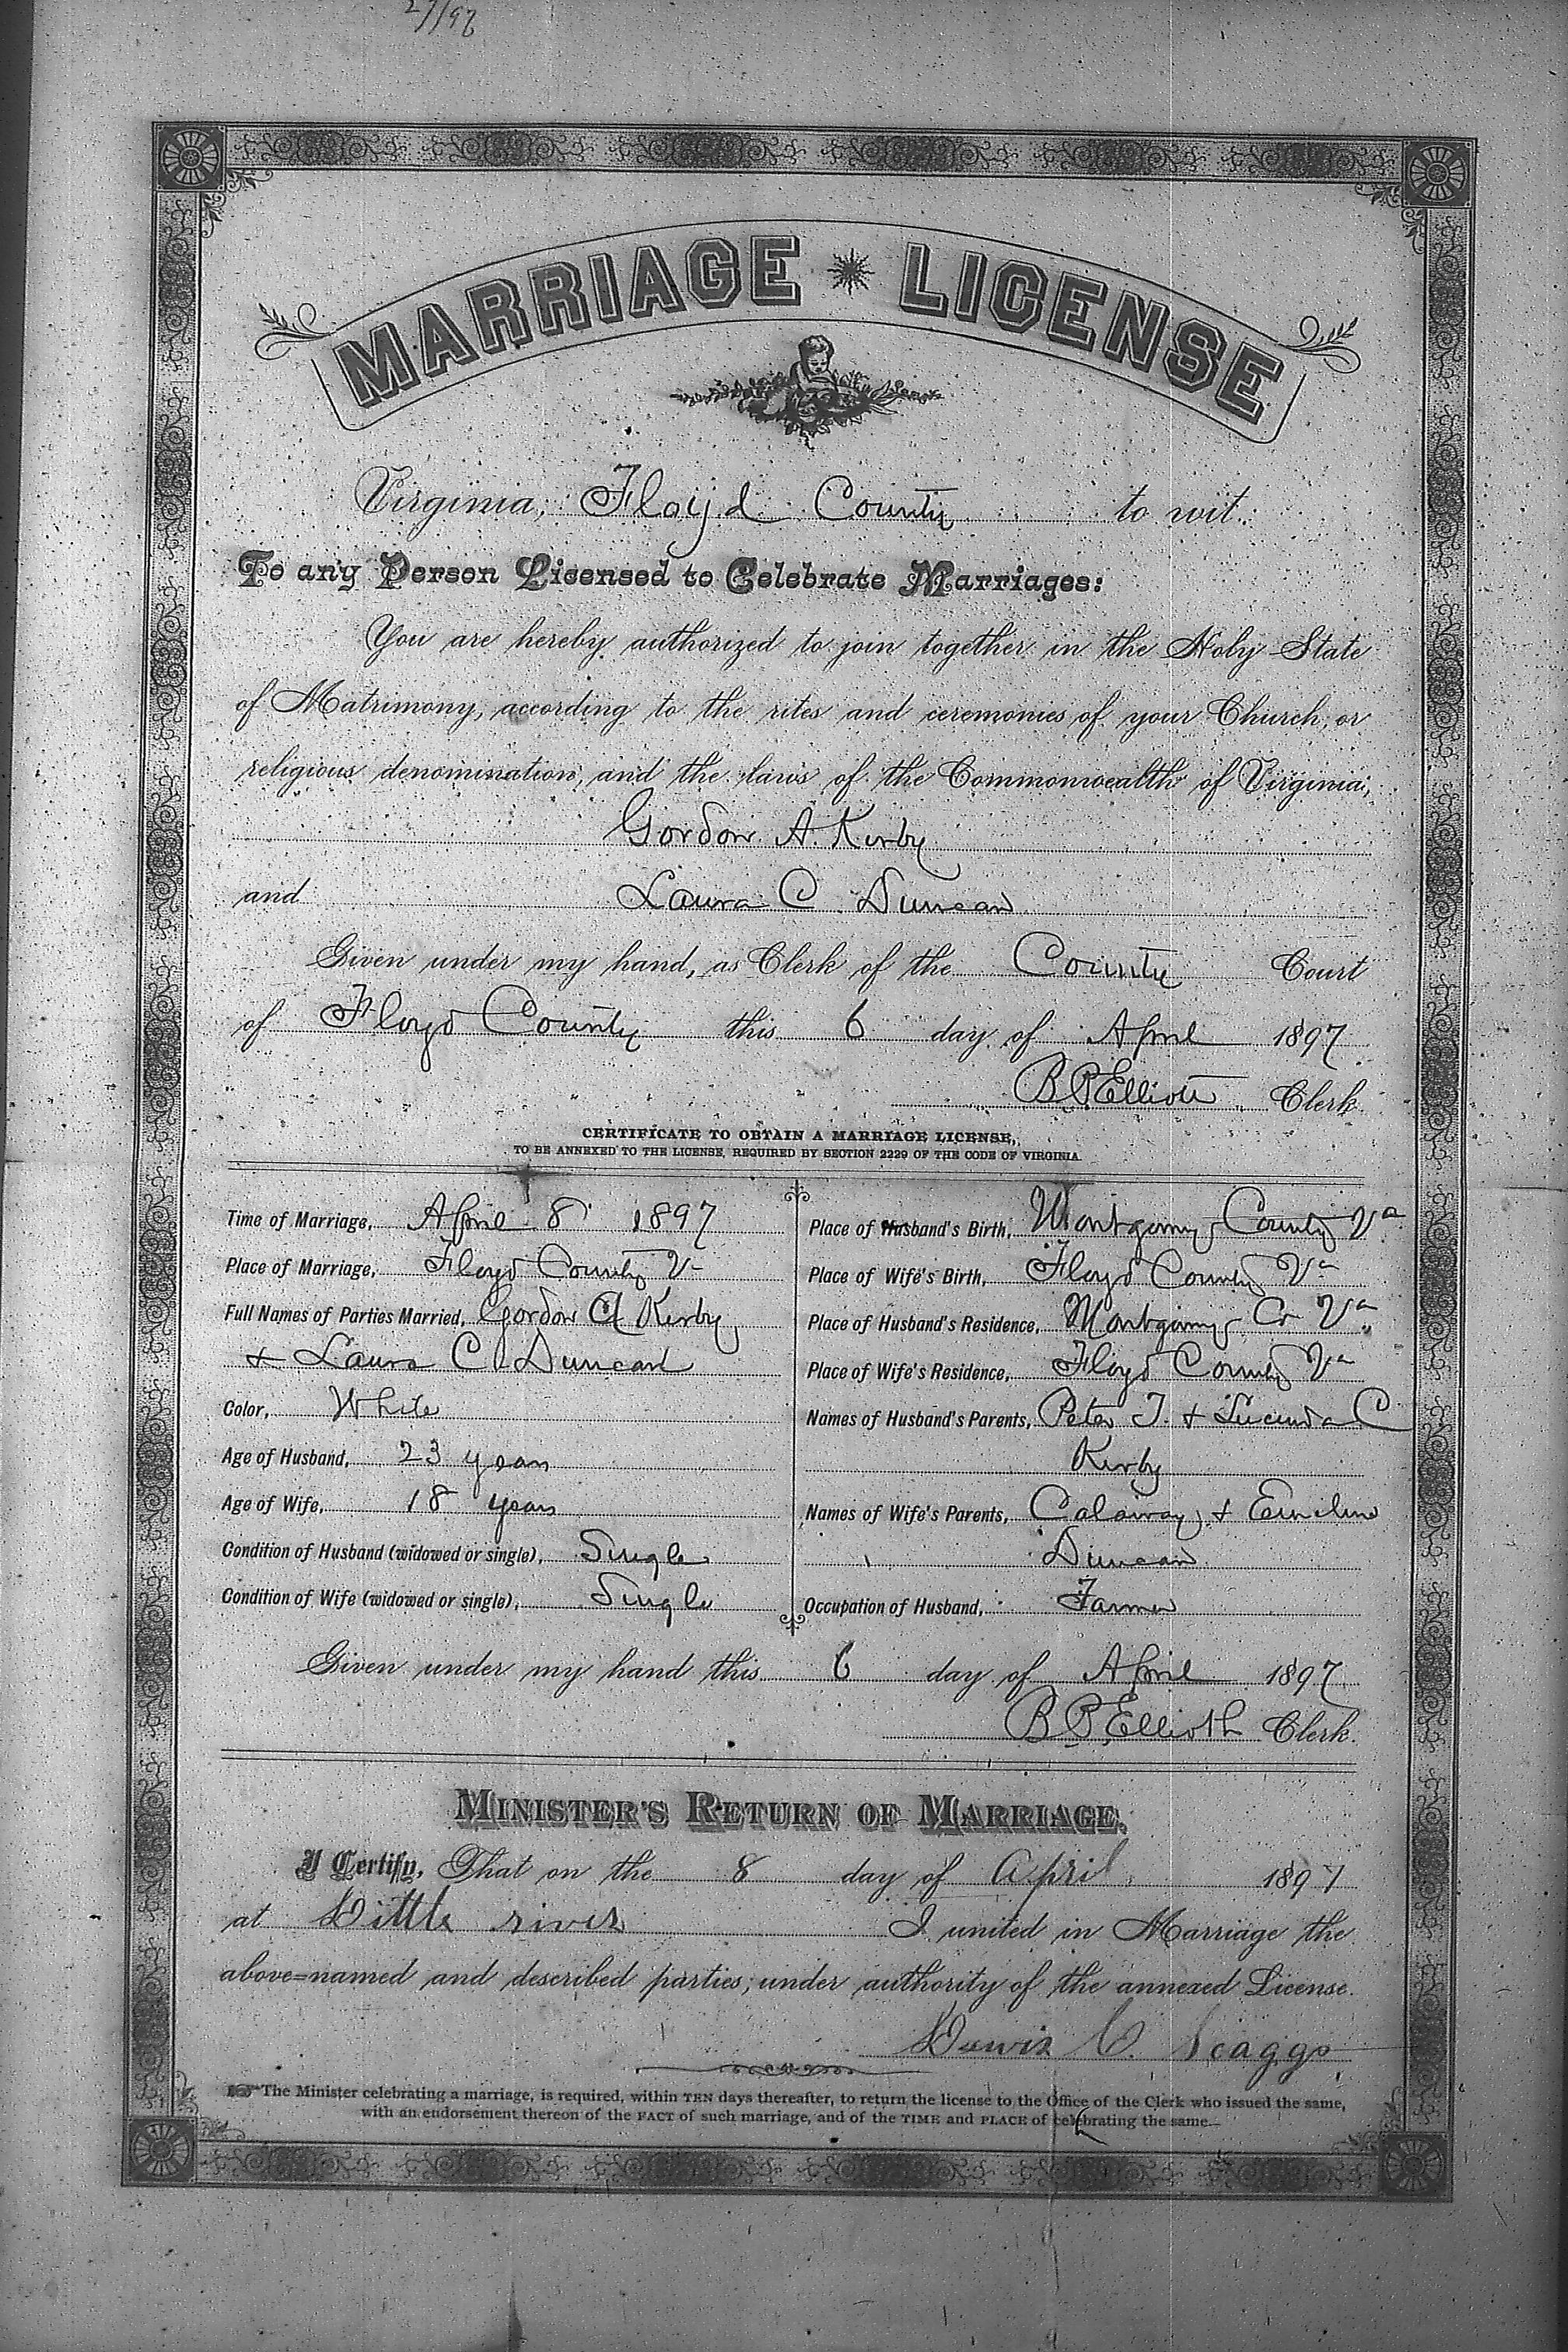 27/97
MARRIAGE LICENSE
Virginia, Floyd County to wit:
To any Person Licensed to Celebrate Marriages:
You are hereby authorized to join together in the Holy State
of Matrimony, according to the rites and ceremonies of your Church, or
religious denomination, and the laws of the Commonwealth of Virginia,
Gordon A. Kirby
and Laura C. Duncan
Given under my hand, as Clerk of the County Court
of Floyd County this 6 day of April 1897
B P Elliott Clerk.
CERTIFICATE TO OBTAIN A MARRIAGE LICENSE,
TO BE ANNEXED TO THE LICENSE, REQUIRED BY SECTION 2229 OF THE CODE OF VIRGINIA.
Time of Marriage, April 8 1897
Place of Marriage, Floyd County Va
Full Names of Parties Married, Gordon A Kirby
+ Laura C Duncan
Color, White
Age of Husband, 23 years
Age of Wife, 18 years
Condition of Husband (widowed or single), Single
Condition of Wife (widowed or single), Single
Place of Husband's Birth, Montgomery County Va
Place of Wife's Birth, Floyd County Va
Place of Husband's Residence, Montgomery Co Va
Place of Wife's Residence, Floyd County Va
Names of Husband's Parents, Peter T. + Lucinda C
Kirby
Names of Wife's Parents, Calaway + Emeline
Duncan
Occupation of Husband, Farmer
Given under my hand this 6 day of April 1897
B P Elliott Clerk.
MINISTER'S RETURN OF MARRIAGE.
I Certify, That on the 8 day of April 1897
at Little river I united in Marriage the
above-named and described parties, under authority of the annexed License.
Lewis C. Scaggs
The Minister celebrating a marriage, is required, within TEN days thereafter, to return the license to the Office of the Clerk who issued the same,
with an endorsement thereon of the FACT of such marriage, and of the TIME and PLACE of celebrating the same.